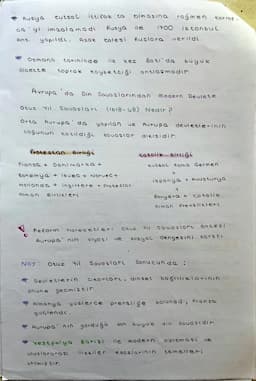 * Rusya kutsal ittifakta olmasına rağmen Karlof-
ça'yı imzalamadı Rusya ile 1700 İstanbul
Ant. yapıldı. Azak kalesi Ruslara verildi.
* Osmanlı tarihinde ilk kez Batı'da büyük
ölçekte toprak kaybettiği antlaşmadır
Avrupa'da Din Savaşlarından Modern Devlete
Otuz Yıl Savaşları (1618-48) Nedir?
Orta Avrupa'da yapılan ve Avrupa devletlerinin
çoğunun katıldığı savaşlar dizisidir.
Protestan Birliği
Katolik Birliği
Fransa + Danimarka +
Bohemya + İsveç + Norveç +
Hollanda + İngiltere + Protestan
Alman Birlikleri
Kutsal Roma Germen
+
İspanya + Avusturya
+
Bavyera + Katolik
Alman Prenslikleri
! Reform Hareketleri Otuz Yıl Savaşları öncesi
Avrupa'nın siyasi ve sosyal dengesini
NOT: Otuz Yıl Savaşları Sonucunda;
* Devletlerin çıkarları, dinsel bağlılıklarının
önüne geçmiştir
* Almanya yüzlerce prensliğe bölündü, Fransa
güçlendi.
* Avrupa'nın gördüğü en büyük din savaşıdır
* Vestfalya Barışı ile modern diplomasi ve
uluslararası ilişkiler esaslarının temelleri
atılmıştır.